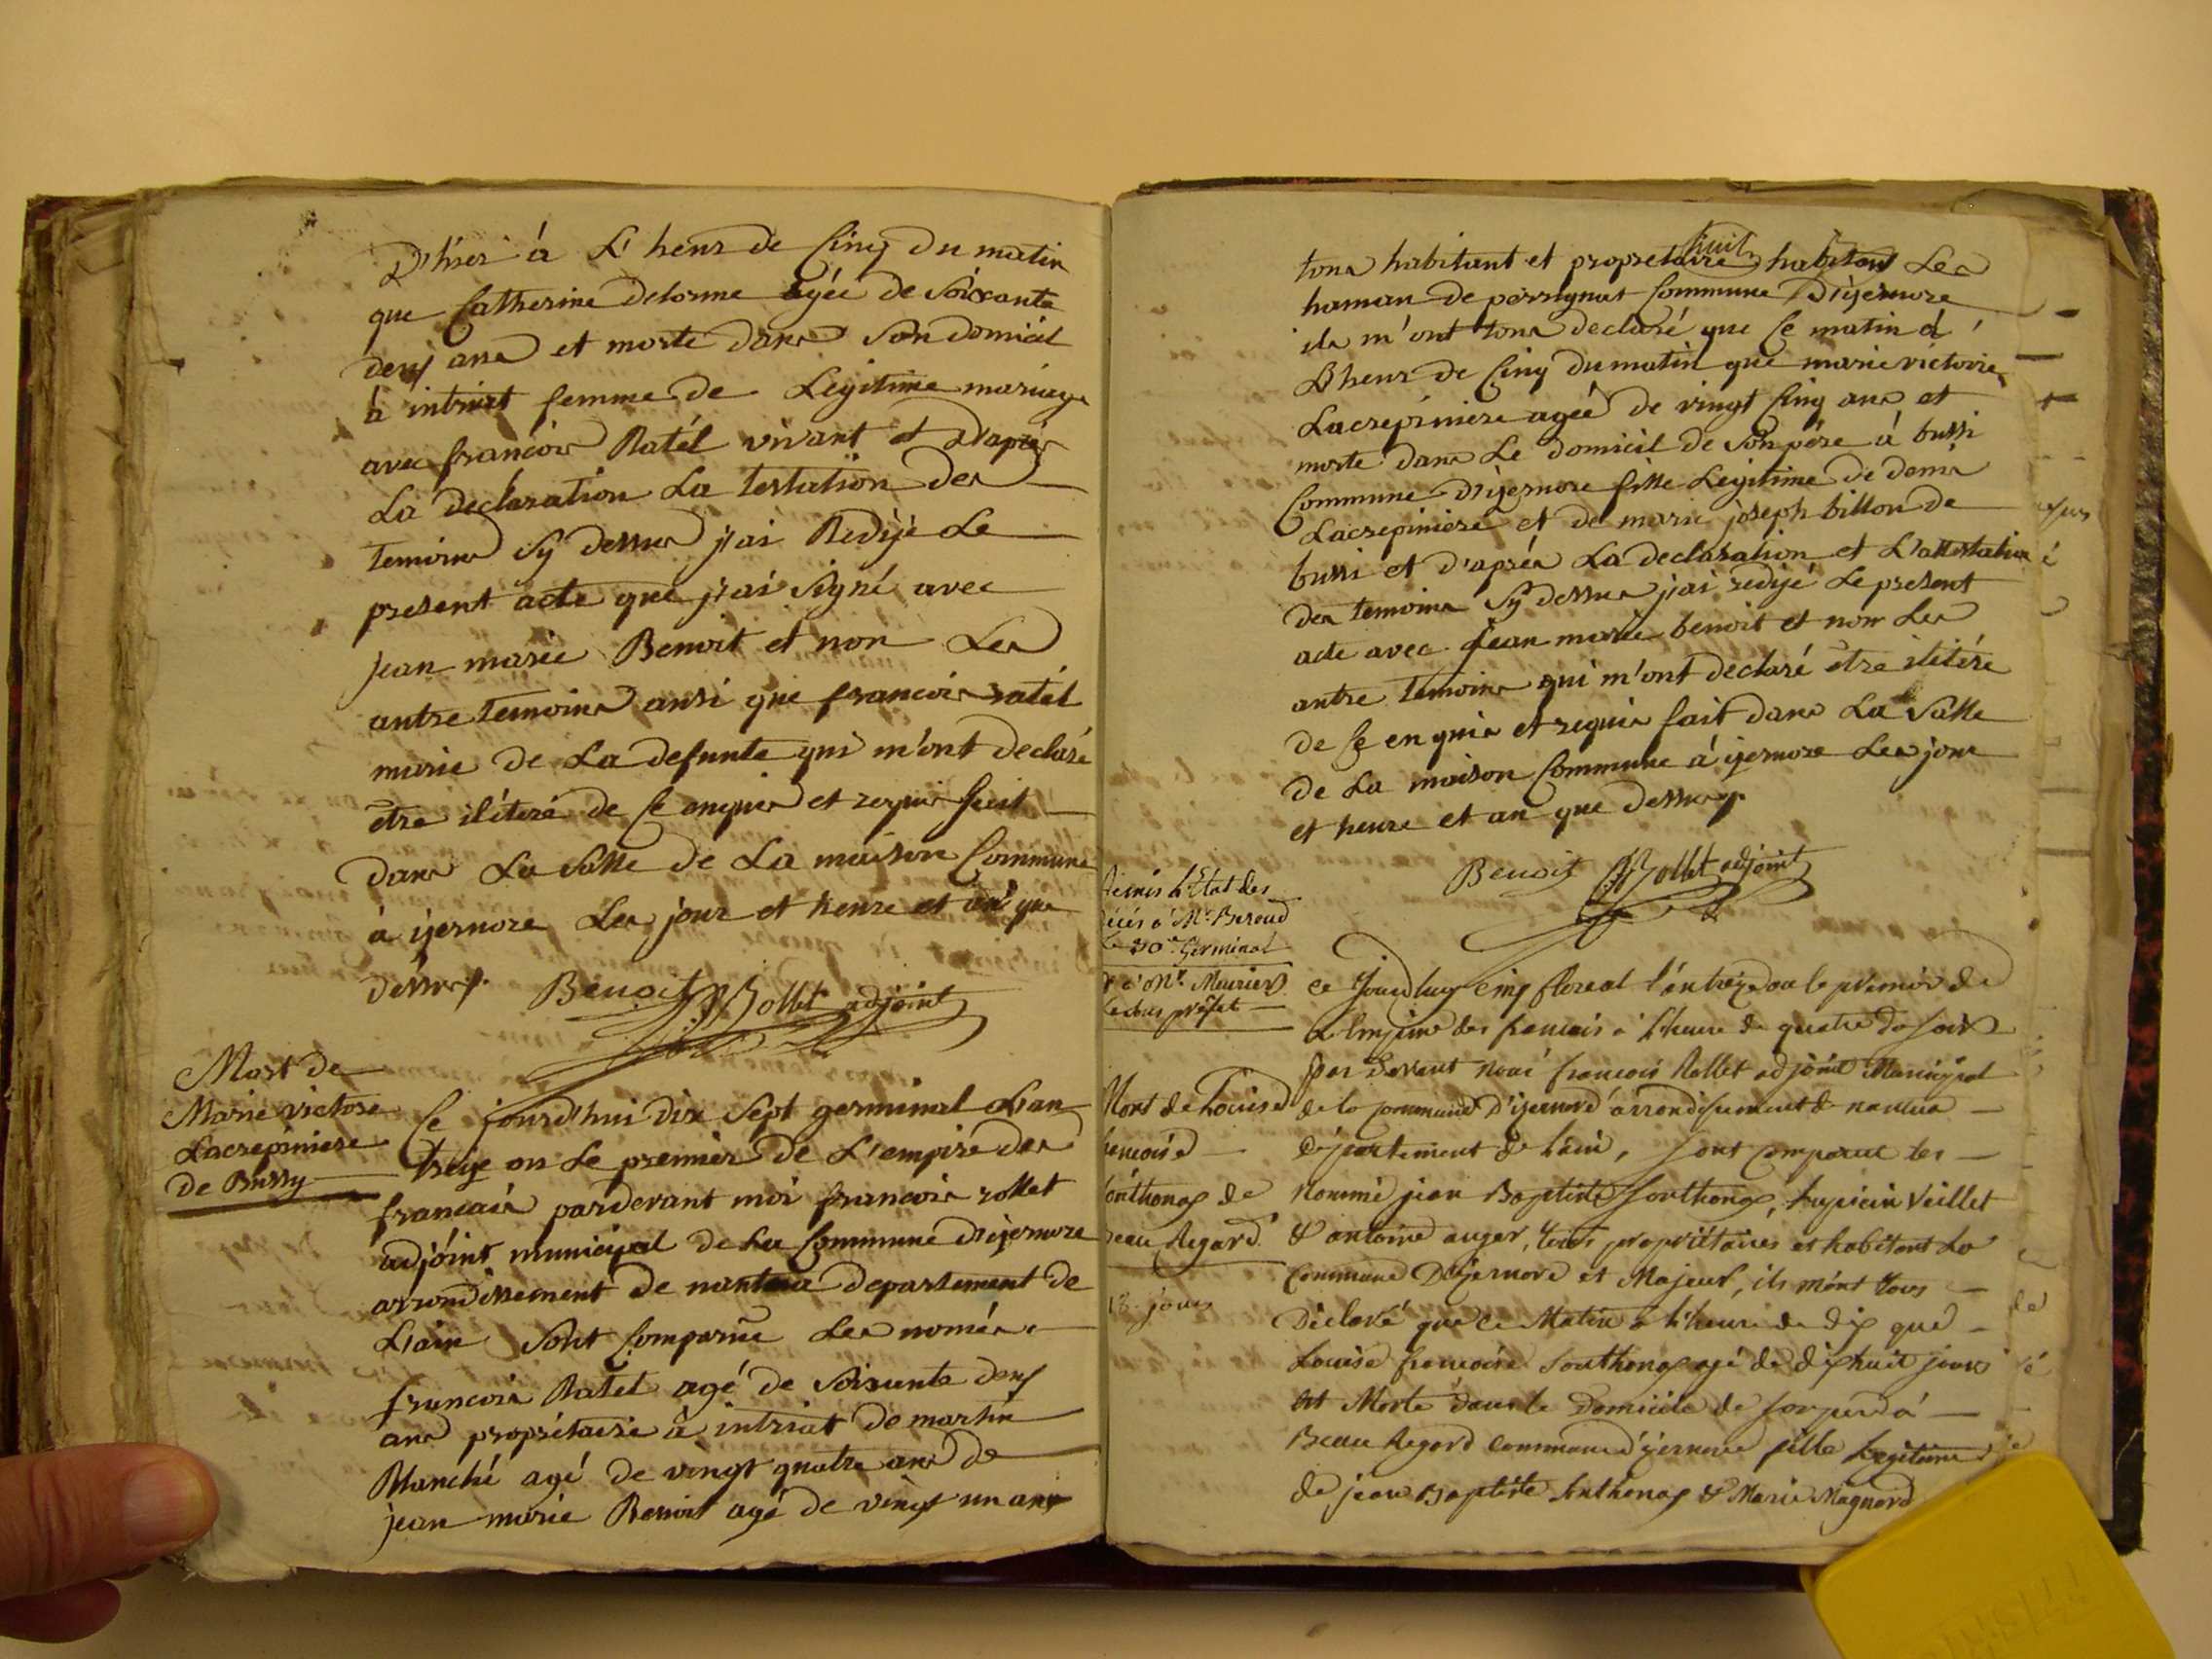 D'hier à L'heur de Cinq du matin
que Catherine delorme agée de Soixante
deux ans et morte dans Son domicil
à intriat femme de Legitime mariage
avec francois Ratel vivant et D'après
La declaration La testation des
temoins Sy dessus j'ai Redijé Le
present acte que j'ai Signé avec
jean marie Benoit et non Les
autre temoins ansi que francois ratel
marie de La defunte qui m'ont declaré
etre ilitéré de Ce enquis et requis fait
dans La Salle de La maison Commune
à ijernore Les jour et heure et an que
dessus
Benoit Rollet adjoint
Mort de
Marie victore
Lacrepiniere
de Bussy
Ce jourd'hui dix Sept germinal L'an
treize ou Le premier de L'empire des
francais pardevant moi francois rollet
adjóint municipal de La Commune D'ijernore
arrondissement de nantua departement de
L'ain Sont Comparue Les només
francois Ratel agé de Soixante deux
ans propriétaire à intriat de martin
Blanché agé de vingt quatre ans de
jean marie Benoit agé de vingt un ans
tous habitant et propretaire habitant Les
haman de perrignat Commune D'ijernore
ils m'ont tous declaré que Ce matin à
L'heur de Cinq du matin que marie victoire
Lacrepiniere ageé de vingt Cinq ans et
morte dans Le domicil de Son pére à bussi
Commune D'ijernore fille Legitime de denis
Lacrepiniere et de marie joseph billon de
bussi et d'aprés La declaration et L'attestation
des temoins Sy dessus j'ai redijé Le present
acte avec jean marie benoit et non Les
autre temoins qui m'ont declaré etre ilitére
de Ce enquis et requis fait dans La Salle
de La maison Commune à ijernore Les jour
et heure et an que dessus
Benoit Rollet adjoint
Remis l'Etat des
décès à Mr Beroud
Le 30e Germinal
à Mr Meurier
Sous préfet
Mort de Louise
francoise
Sonthonax de
Beau Regard
18. jours
ce Jourdhuy cinq floreal l'an treize ou le prémier de
L'Empire des francais à l'heure de quatre du soir
par Devant nous francois Rollet adjoint Municipal
de la commune D'ijernore arrondissement de nantua
département de l'ain, Sont Comparue les
nommé jean Baptiste Sonthonax, Lupicin Veillet
& antoine auger, tous propriétaires et habitant La
Commune D'ijernore et Majeur, ils m'ont tous
Déclaré que ce Matin à l'heure de dix que
Louise francoise Sonthonax agé de dix huit jours
est Morte dans le Domicile de son pere à
Beau Regard commune d'ijernore fille Legitime
de jean Baptiste Sonthonax & Marie Magnard